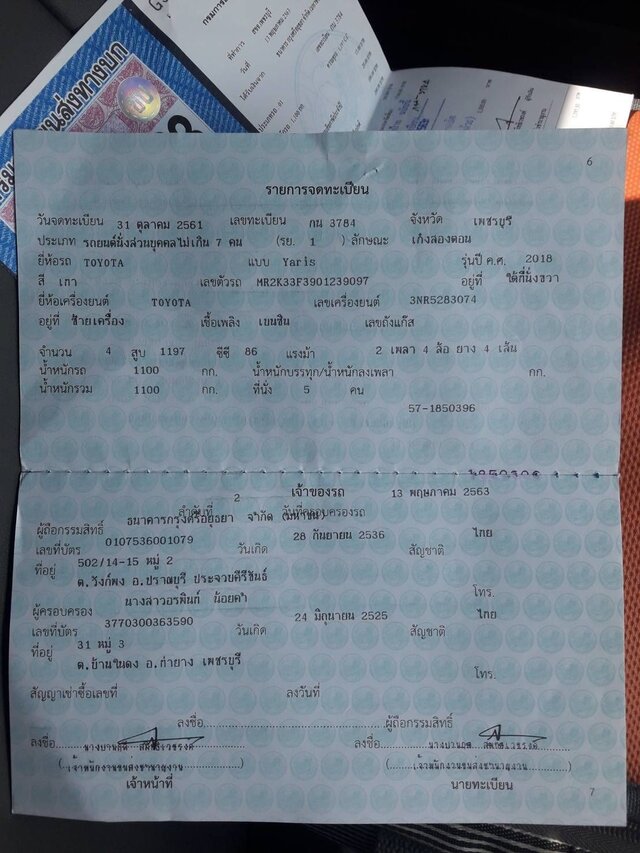 6
รายการจดทะเบียน
วันจดทะเบียน 31 ตุลาคม 2561 เลขทะเบียน กน 3784 จังหวัด เพชรบุรี
ประเภท รถยนต์นั่งส่วนบุคคลไม่เกิน 7 คน (รย. 1 ) ลักษณะ เก๋งสองตอน
ยี่ห้อรถ TOYOTA แบบ Yaris รุ่นปี ค.ศ. 2018
สี เทา เลขตัวรถ MR2K33F3901239097 อยู่ที่ ใต้ที่นั่งขวา
ยี่ห้อเครื่องยนต์ TOYOTA เลขเครื่องยนต์ 3NR5283074
อยู่ที่ ซ้ายเครื่อง เชื้อเพลิง เบนซิน เลขถังแก๊ส
จำนวน 4 สูบ 1197 ซีซี 86 แรงม้า 2 เพลา 4 ล้อ ยาง 4 เส้น
น้ำหนักรถ 1100 กก. น้ำหนักบรรทุก/น้ำหนักลงเพลา กก.
น้ำหนักรวม 1100 กก. ที่นั่ง 5 คน
57-1850396
เจ้าของรถ
ลำดับที่ 2 วันที่ครอบครองรถ 13 พฤษภาคม 2563
ผู้ถือกรรมสิทธิ์ ธนาคารกรุงศรีอยุธยา จำกัด (มหาชน)
เลขที่บัตร 0107536001079 วันเกิด 28 กันยายน 2536 สัญชาติ ไทย
ที่อยู่ 502/14-15 หมู่ 2
ต.วังก์พง อ.ปราณบุรี ประจวบคีรีขันธ์ โทร.
ผู้ครอบครอง นางสาวอรพินท์ น้อยคำ
เลขที่บัตร 3770300363590 วันเกิด 24 มิถุนายน 2525 สัญชาติ ไทย
ที่อยู่ 31 หมู่ 3
ต.บ้านในดง อ.ท่ายาง เพชรบุรี โทร.
สัญญาเช่าซื้อเลขที่ ลงวันที่
ลงชื่อ ผู้ถือกรรมสิทธิ์
ลงชื่อ ลงชื่อ
(เจ้าพนักงานขนส่งชำนาญงาน) (เจ้าพนักงานขนส่งชำนาญงาน)
เจ้าหน้าที่ นายทะเบียน
7